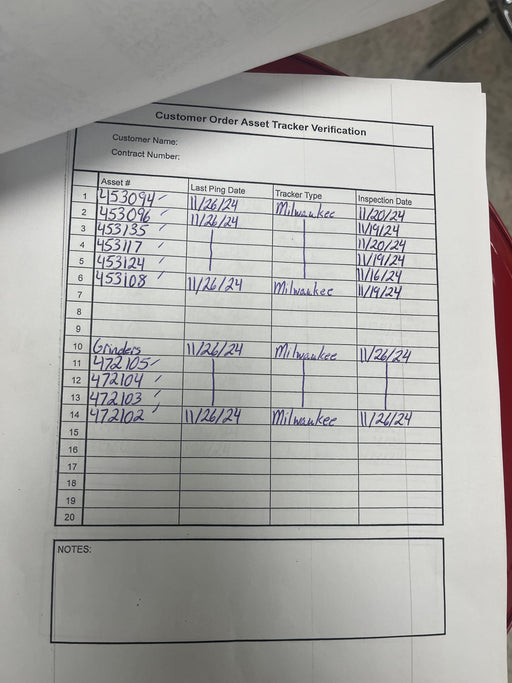 Customer Order Asset Tracker Verification
Customer Name:
Contract Number:
Asset # Last Ping Date Tracker Type Inspection Date
1 453094 ✓ 11/26/24 Milwaukee 11/20/24
2 453096 ✓ 11/26/24 11/19/24
3 453135 ✓ 11/20/24
4 453117 ✓ 11/19/24
5 453124 ✓ 11/16/24
6 453108 ✓ 11/26/24 Milwaukee 11/19/24
7
8
9
10 Grinders 11/26/24 Milwaukee 11/26/24
11 472105 ✓
12 472104 ✓
13 472103 ✓
14 472102 ✓ 11/26/24 Milwaukee 11/26/24
15
16
17
18
19
20
NOTES: